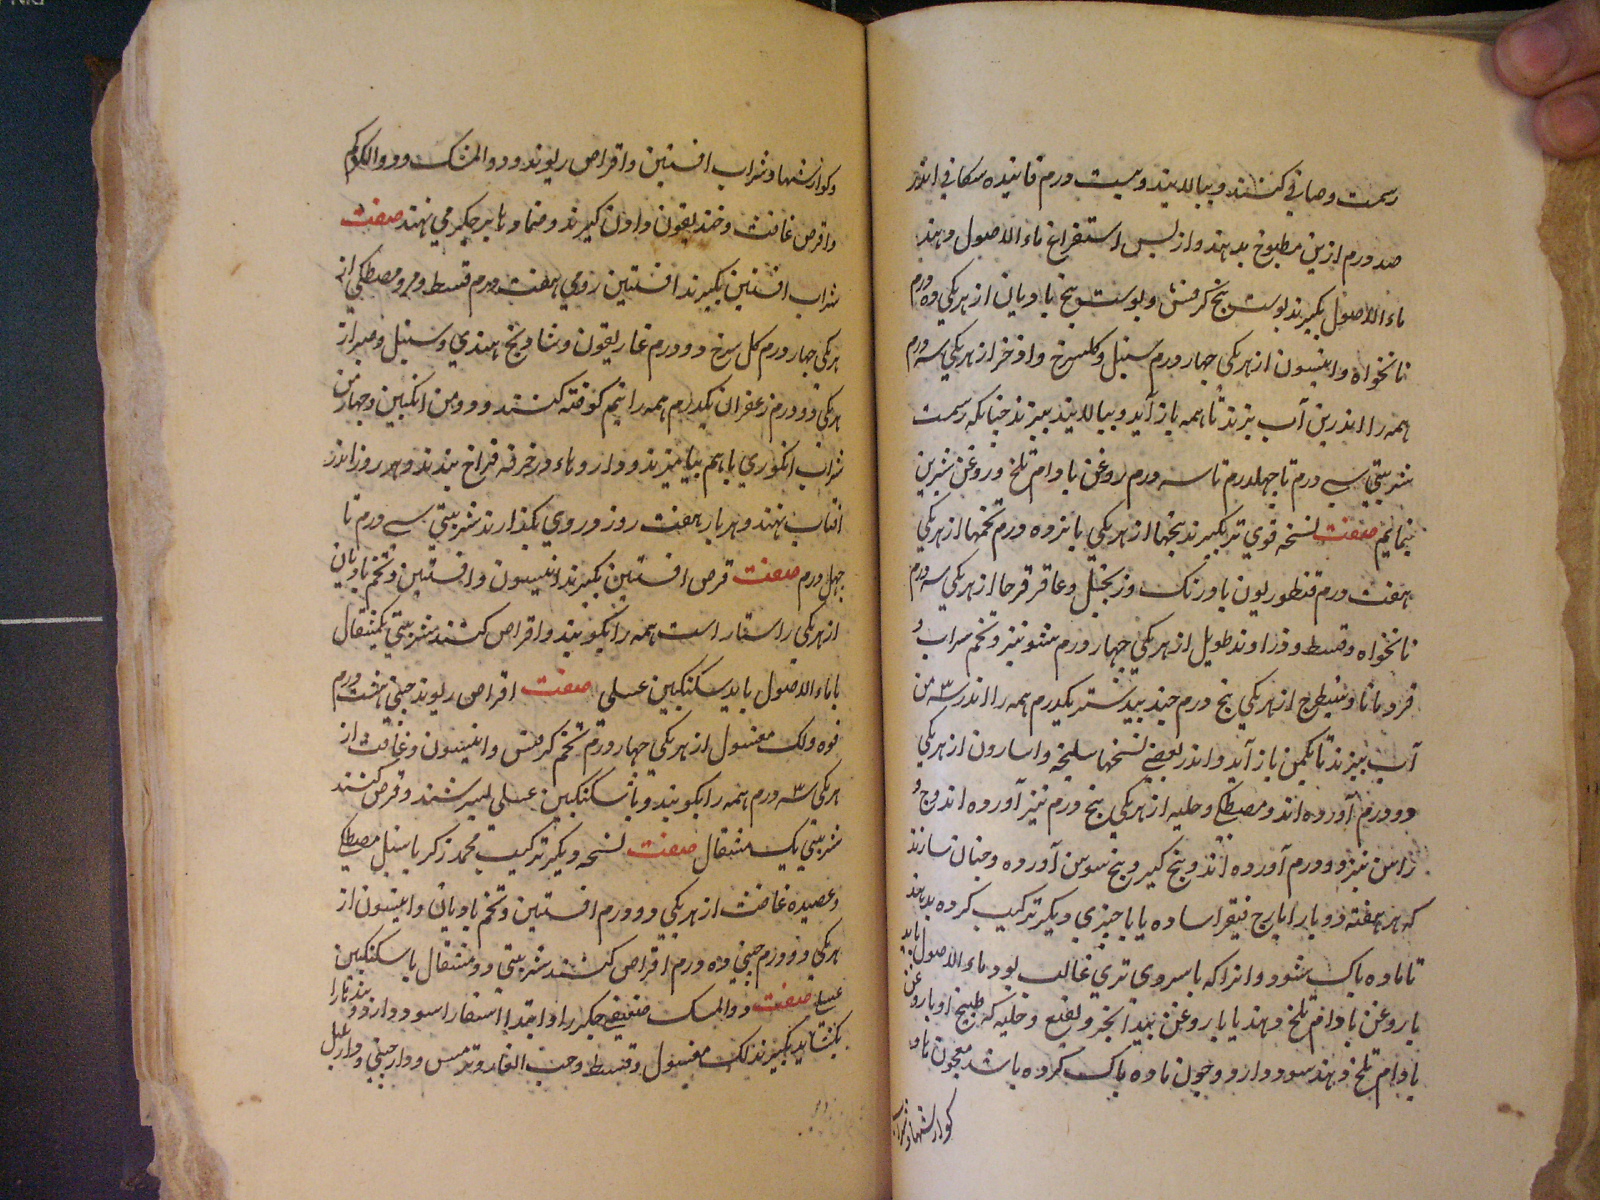 رسمت و صافی کنند و ببالایند و بیست درم فانیذ سکافی اندر
صد درم ازین مطبوخ بدهند و از پس استفراغ ماء الاصول دهند
ماء الاصول بکیرند پوست بیخ کرفس و پوست بیخ بادیان از هریکی ده درم
نانخواه و انیسون از هریکی چهار درم سنبل و کلسرخ و اذخر از هریکی سه درم
همه را اندرین آب بزند تا همه باز آید و ببالایند بیزند چنانکه رسمت
شربتی سی درم تا چهلدرم تا سه درم روغن بادام تلخ و روغن شیرین
بنمایم صفت نسخه قوی تر بکیرند بیخها از هریکی پانزده درم تخمها از هریکی
هفت درم قنطوریون باورنک و زنجبیل و عاقرقرحا از هریکی سه درم
نانخواه و قسط و زراوند طویل از هریکی چهار درم شونیز و تخم سداب و
قردمانا و شیطرج از هریکی پنج درم جندبیدستر یکدرم همه را اندر سه من
آب بیزند تا یکمن باز آید و اندر بعضی نسخها سلیخه و اسارون از هریکی
دو درم آورده اند و مصطکی و حلبه از هریکی پنج درم نیز آورده اند و ج و
راسن نیز دو درم آورده اند و بیخ کبر و بیخ سوسن آورده و چنان سازند
که هر هفته دو بار ایارج فیقرا ساده یا با چیزی دیکر ترکیب کرده بدهند
تا ماده پاک شود و انرا که با سردی تری غالب بود ماء الاصول باید
با روغن بادام تلخ دهند یا با روغن بید انجیر و نفع و حلبه که طبیخ او با روغن
بادام تلخ دهند سود دارد و چون ماده پاک کرده باشد معجون ماد
کوارشها و شراب
و کوارشها و شراب افسنتین و اقراص ریوند و دوالمشک و دوالکرکم
و اقرص غافت و خندیقون و اون کیرند و ضمادها بر جکر می نهند صفت
شراب افسنتین بکیرند افسنتین رومی هفت درم قسط و مر و مصطکی از
هریکی چهار درم کل سرخ دو درم غاریقون و شادنج هندی و سنبل و صبر از
هریکی دو درم زعفران یکدرم همه را نیم کوفته کنند و دو من انکبین و چهار من
شراب انکوری با هم بیامیزند و داروها در خرقه فراخ بندند و هر روز اندر
افتاب نهند و هر بار هفت روز در وی بکذارند شربتی سی درم تا
چهل درم صفت قرص افسنتین بکیرند انیسون و افسنتین و تخم بادیان
از هریکی راستاراست همه را بکوبند و اقراص کنند شربتی یکمثقال
با ماء الاصول یا بد سکنکبین عسلی صفت اقراص ریوند چینی هشت درم
فوه و لک مغسول از هریکی چهار درم تخم کرفس و انیسون و غافت از
هریکی سه درم همه را بکوبند و با سکنکبین عسلی بسرشند و قرص کنند
شربتی یک مثقال صفت نسخه دیکر ترکیب محمد زکریا سنبل مصطکی
و عصیده غافت از هریکی دو درم افسنتین و تخم بادیان و انیسون از
هریکی دو درم چینی ده درم اقراص کنند شربتی دو مثقال با سکنکبین
عسلی صفت دوالمسک ضعیفی جکر را و ابتدا استسقا را سود دارد و بندها را
بکشاید بکیرند لک مغسول و قسط و حب الغار و ترمس و دارچینی و دارفلفل